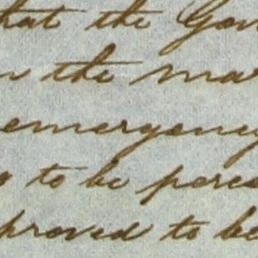 that the Gov
the ma
emergency
to be perce
proved to be